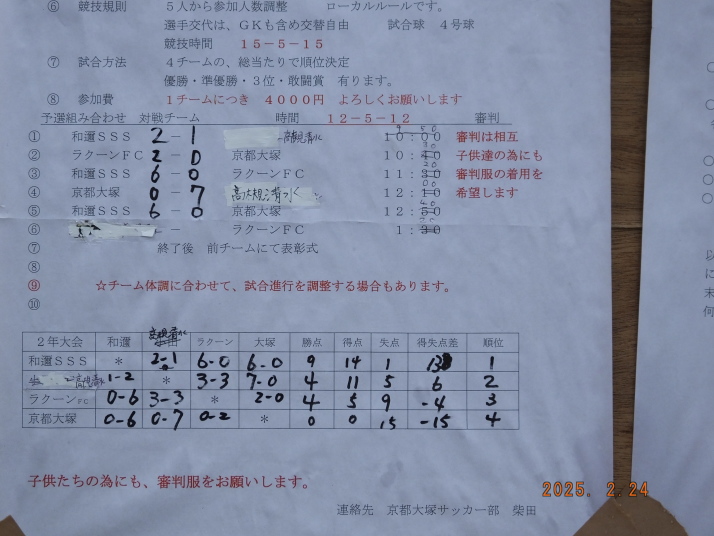 ⑥ 競技規則 5人から参加人数調整 ローカルルールです。
選手交代は、GKも含め交替自由 試合球 4号球
競技時間 15-5-15
⑦ 試合方法 4チームの、総当たりで順位決定
優勝・準優勝・3位・敢闘賞 有ります。
⑧ 参加費 1チームにつき 4000円 よろしくお願いします
予選組み合わせ 対戦チーム 時間 12-5-12 審判
① 和邇SSS 2-1 10:00 審判は相互
② ラクーンFC 2-0 京都大塚 10:40 子供達の為にも
③ 和邇SSS 6-0 ラクーンFC 11:30 審判服の着用を
④ 京都大塚 0-7 12:10 希望します
⑤ 和邇SSS 6-0 京都大塚 12:50
⑥ - ラクーンFC 1:30
⑦ 終了後 前チームにて表彰式
⑧
⑨ ☆チーム体調に合わせて、試合進行を調整する場合もあります。
⑩
2年大会 和邇 ラクーン 大塚 勝点 得点 失点 得失点差 順位
和邇SSS * 2-1 6-0 6-0 9 14 1 13 1
1-2 * 3-3 7-0 4 11 5 6 2
ラクーンFC 0-6 3-3 * 2-0 4 5 9 -4 3
京都大塚 0-6 0-7 0-2 * 0 0 15 -15 4
子供たちの為にも、審判服をお願いします。
2025. 2.24
連絡先 京都大塚サッカー部 柴田